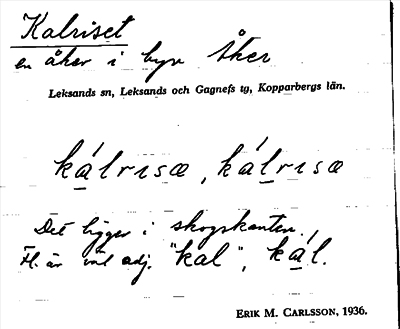 Kalriset
en åker i byn Åker
Leksands sn, Leksands och Gagnefs tg, Kopparbergs län.
ká̱lrısæ, ká̱lrısæ
Det ligger i skogskanten.
Fl. är väl adj. "kal", ká̱l.
ERIK M. CARLSSON, 1936.